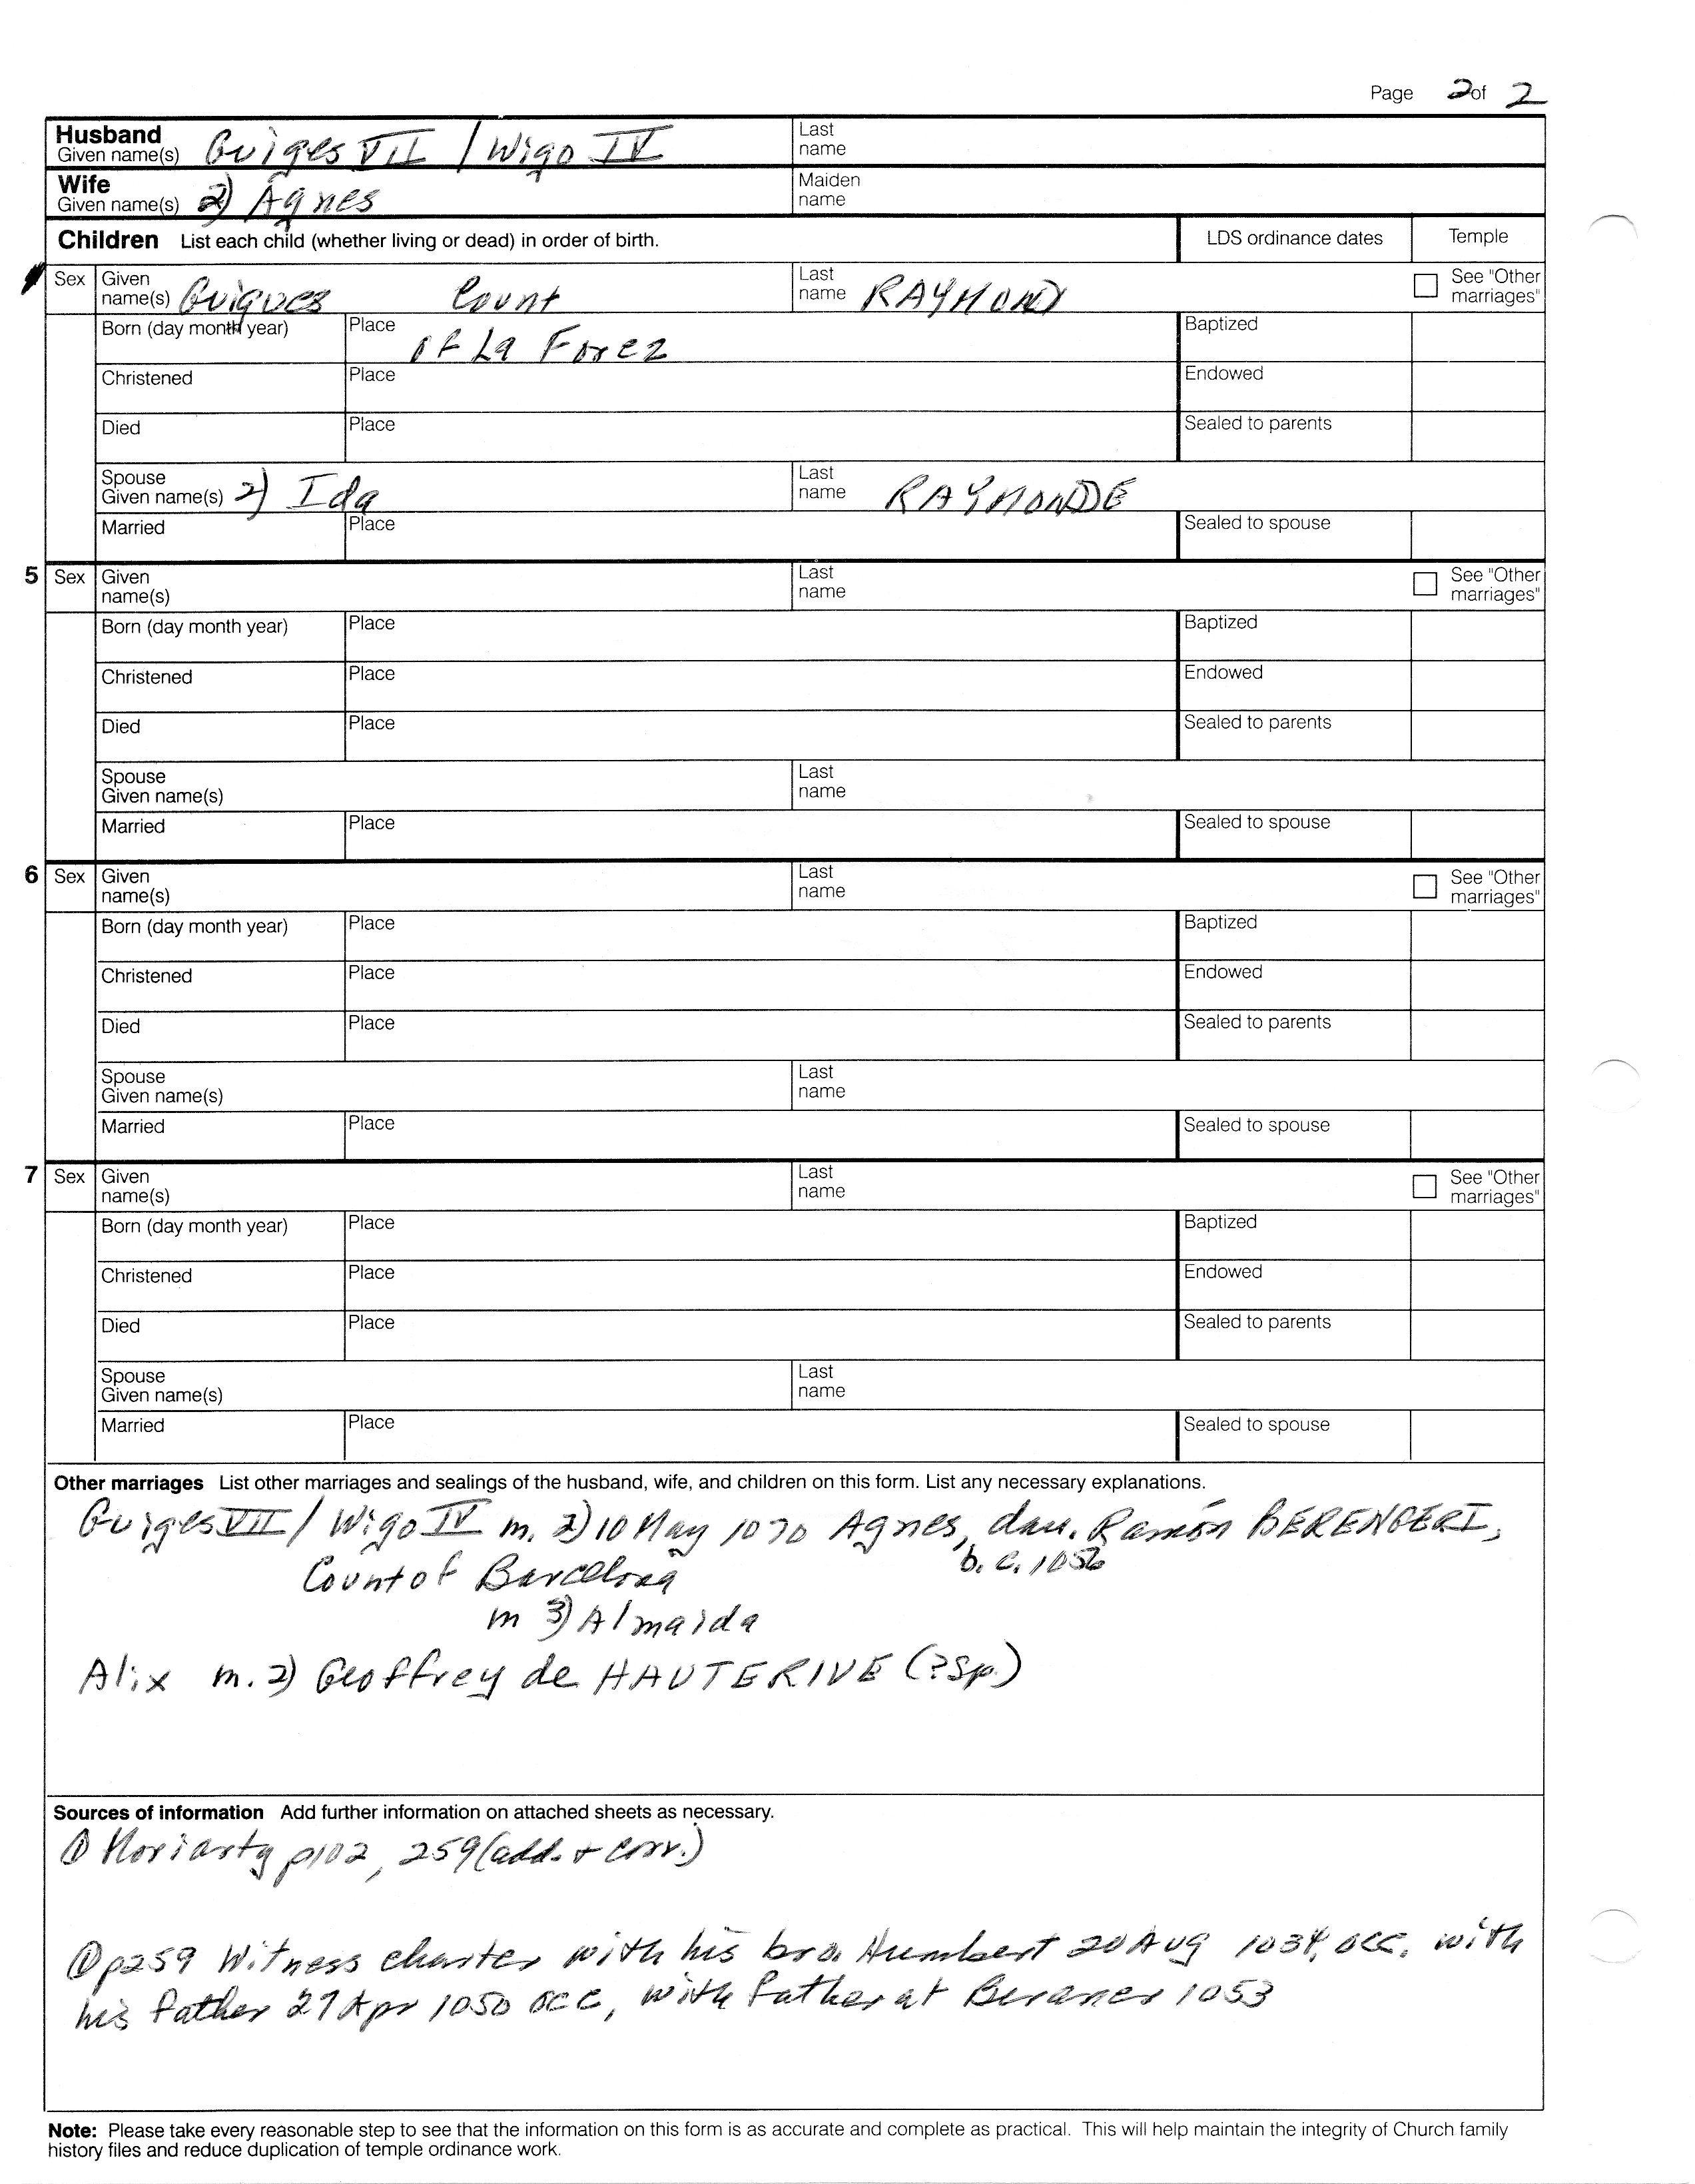 Page 2 of 2
Husband
Given name(s) Guiges VII / Wigo IV Last name
Wife
Given name(s) 2) Agnes Maiden name
Children List each child (whether living or dead) in order of birth. LDS ordinance dates Temple
Sex Given name(s) Guigues Count Last name RAYMOND See "Other marriages"
Born (day month year) Place of La Forez Baptized
Christened Place Endowed
Died Place Sealed to parents
Spouse Given name(s) 2) Ida Last name RAYMONDE
Married Place Sealed to spouse
5 Sex Given name(s) Last name See "Other marriages"
Born (day month year) Place Baptized
Christened Place Endowed
Died Place Sealed to parents
Spouse Given name(s) Last name
Married Place Sealed to spouse
6 Sex Given name(s) Last name See "Other marriages"
Born (day month year) Place Baptized
Christened Place Endowed
Died Place Sealed to parents
Spouse Given name(s) Last name
Married Place Sealed to spouse
7 Sex Given name(s) Last name See "Other marriages"
Born (day month year) Place Baptized
Christened Place Endowed
Died Place Sealed to parents
Spouse Given name(s) Last name
Married Place Sealed to spouse
Other marriages List other marriages and sealings of the husband, wife, and children on this form. List any necessary explanations.
Guiges VII / Wigo IV m. 2) 10 May 1070 Agnes, dau. Ramón BERENGERI,
b. c. 1056
Count of Barcelona
m 3) Almaida
Alix m. 2) Geoffrey de HAUTERIVE (?sp.)
Sources of information Add further information on attached sheets as necessary.
① Moriarty p102, 259 (add. + corr.)
① p259 Witness charter with his bro. Humbert 20 Aug 1034, occ. with
his father 27 Apr 1050 occ, with father at 1053
Note: Please take every reasonable step to see that the information on this form is as accurate and complete as practical. This will help maintain the integrity of Church family
history files and reduce duplication of temple ordinance work.